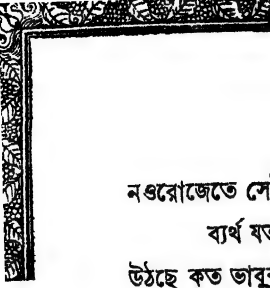 নওরোজেতে সে
ব্যর্থ যত
উঠছে কত ভাবুক